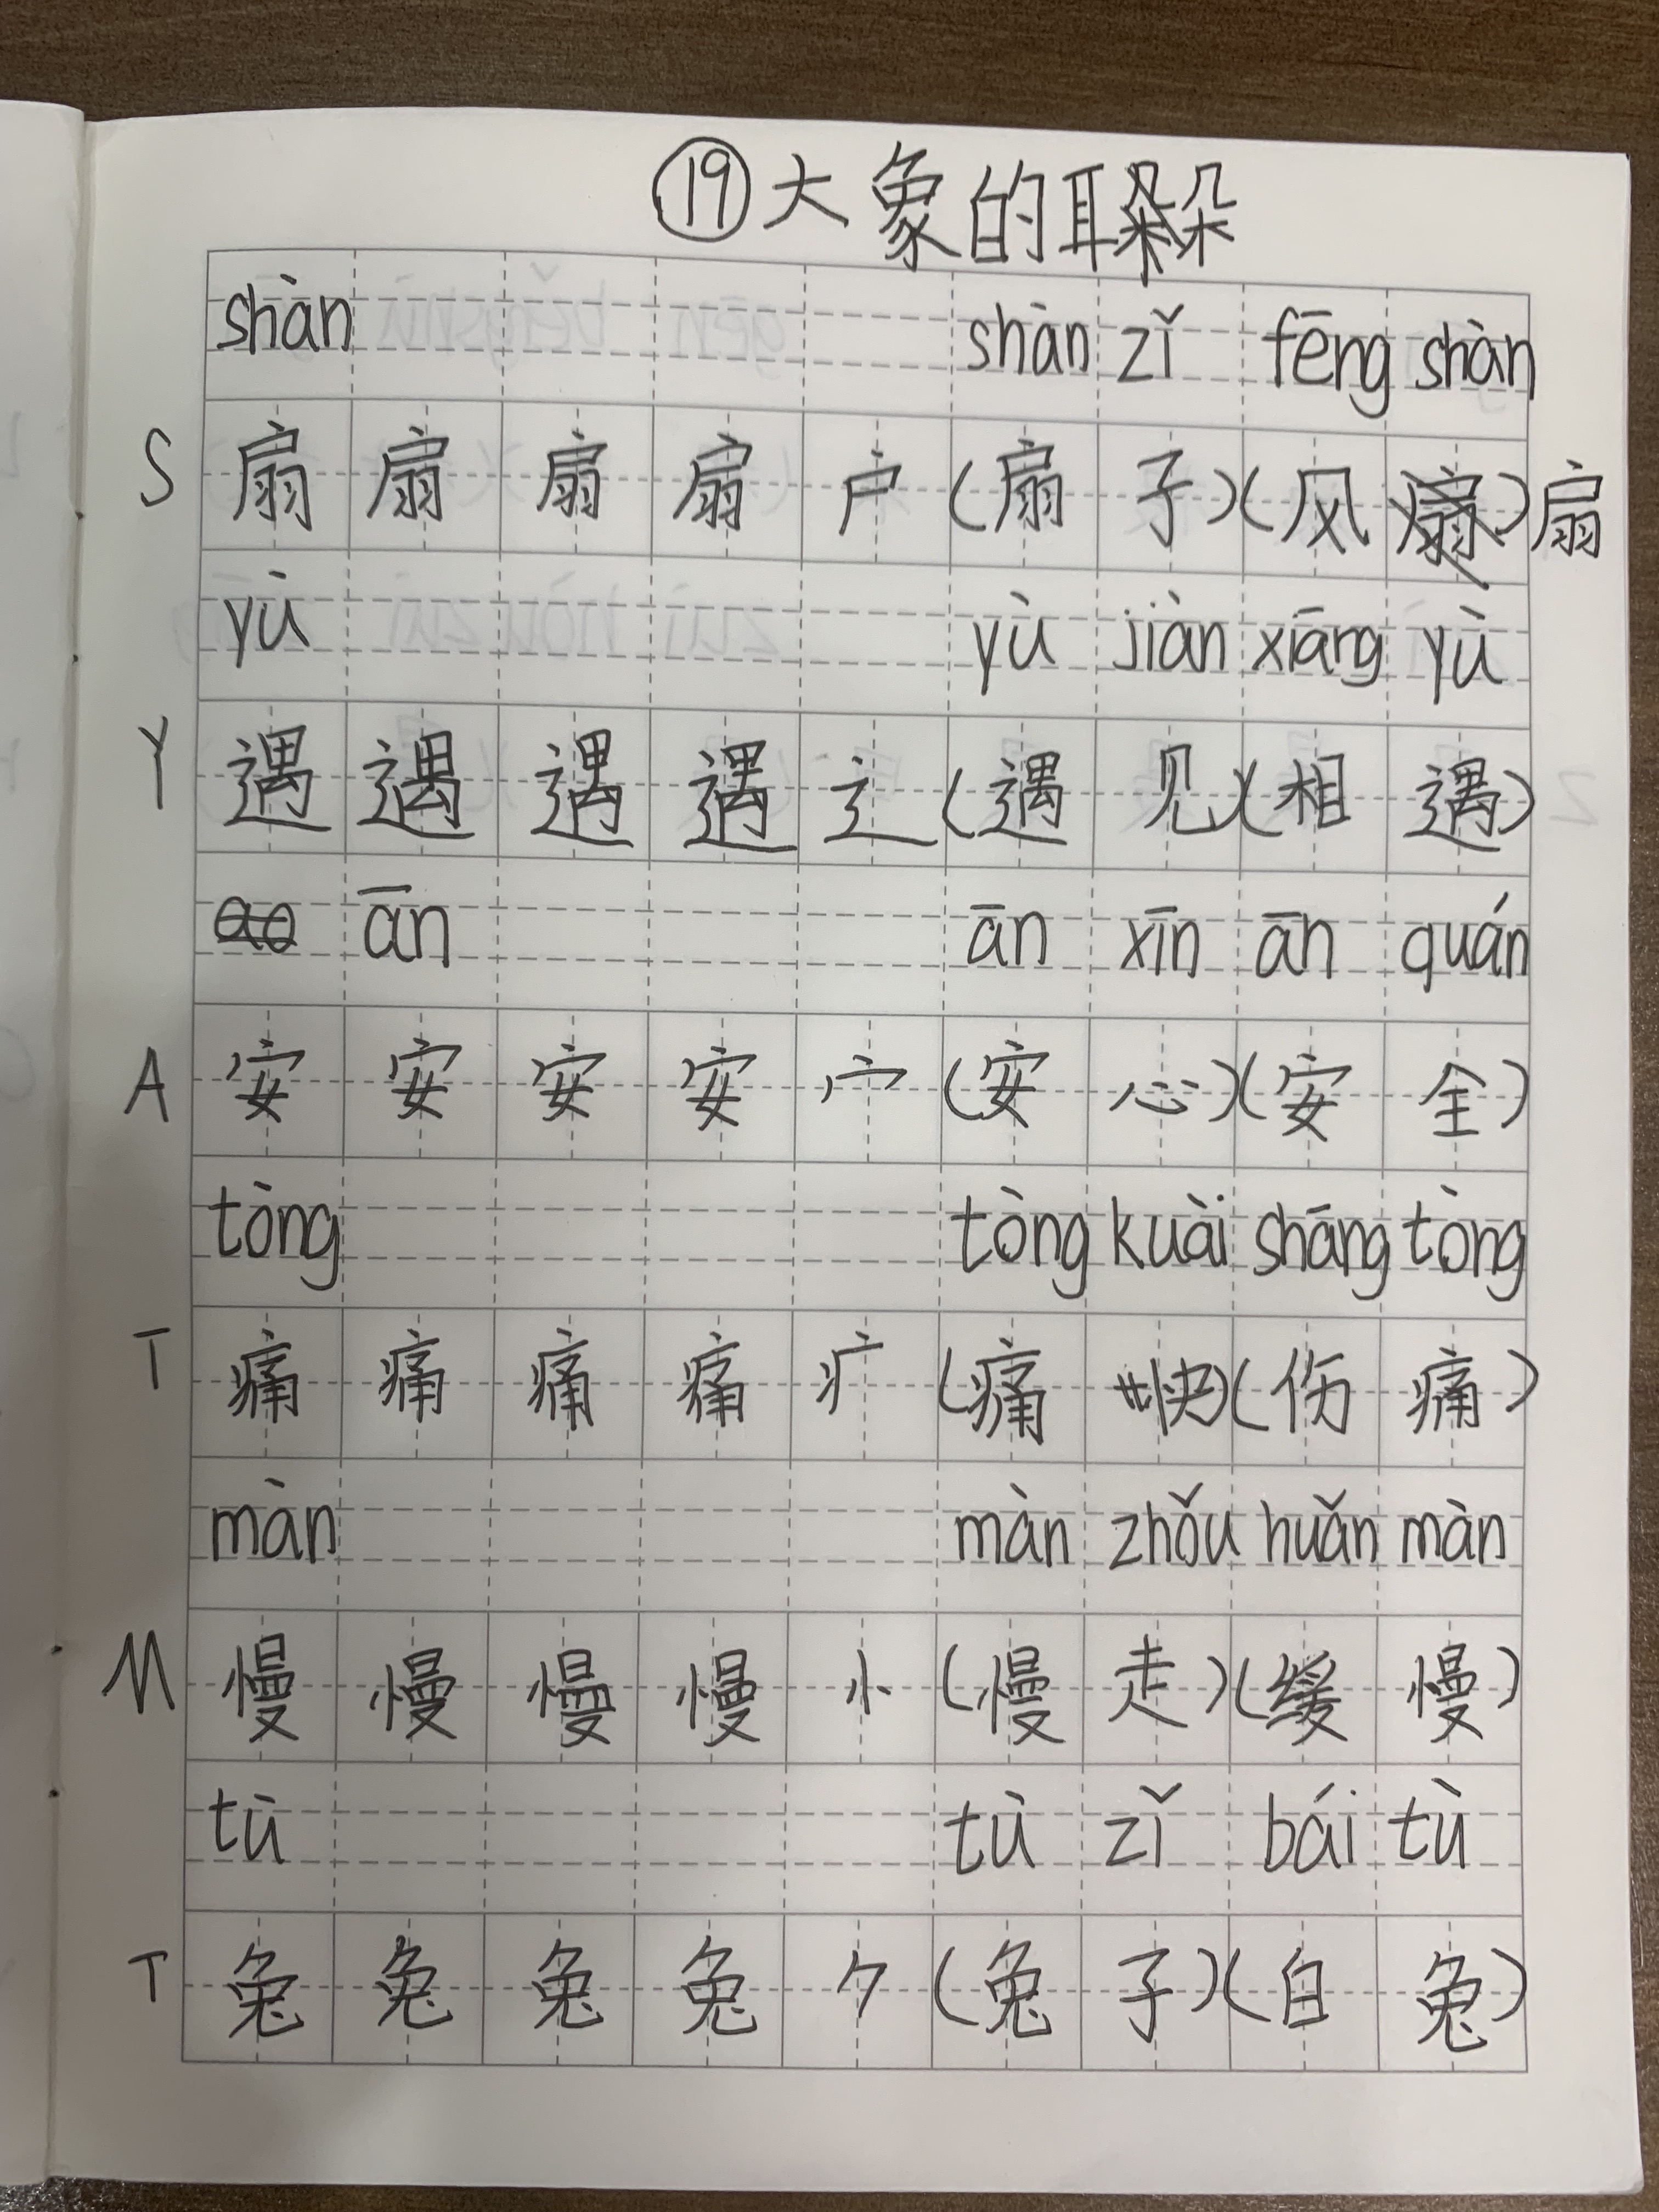 ⑲大象的耳朵
shàn shàn zǐ fēng shàn
S 扇 扇 扇 扇 户 (扇 子)(风 扇)扇
yù yù jiàn xiāng yù
Y 遇 遇 遇 遇 辶 (遇 见)(相 遇)
ao ān ān xīn ān quán
A 安 安 安 安 宀 (安 心)(安 全)
tòng tòng kuài shāng tòng
T 痛 痛 痛 痛 疒 (痛 快)(伤 痛)
màn màn zhǒu huǎn màn
M 慢 慢 慢 慢 忄 (慢 走)(缓 慢)
tù tù zǐ bái tù
T 兔 兔 兔 兔 ⺈ (兔 子)(白 兔)